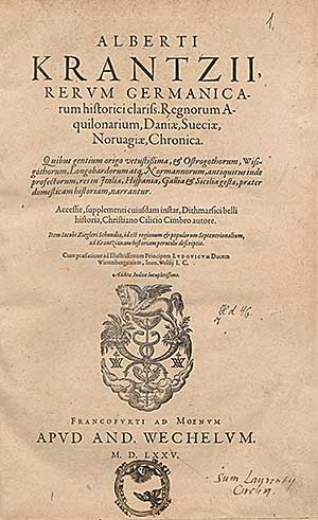 1.
ALBERTI
KRANTZII,
RERVM GERMANICA-
rum historici clariss. Regnorum A-
quilonarium, Daniæ, Sueciæ,
Noruagiæ, Chronica.
Quibus gentium origo vetustissima, & Ostrogothorum, Wisi-
gothorum, Longobardorum atq, Normannorum, antiquitus inde
profectorum, res in Italia, Hispania, Gallia & Sicilia gestæ, præter
domesticam historiam, narrantur.
Accessit, supplementi cuiusdam instar, Dithmarsici belli
historia, Christiano Cilicio Cimbro autore.
Item Iacobi Ziegleri Schondia, id est regionum & populorum Septentrionalium,
ad Krantzianam historiam perutilis descriptio.
Cum præfatione ad Illustrissimum Principem LVDOVICVM Ducem
Wirtenbergensem, Ioan. Wolfij I. C.
Addito Indice locupletissimo.
FRANCOFVRTI AD MOENVM
APVD AND. WECHELVM.
M. D. LXXV.
Sum Laurentij